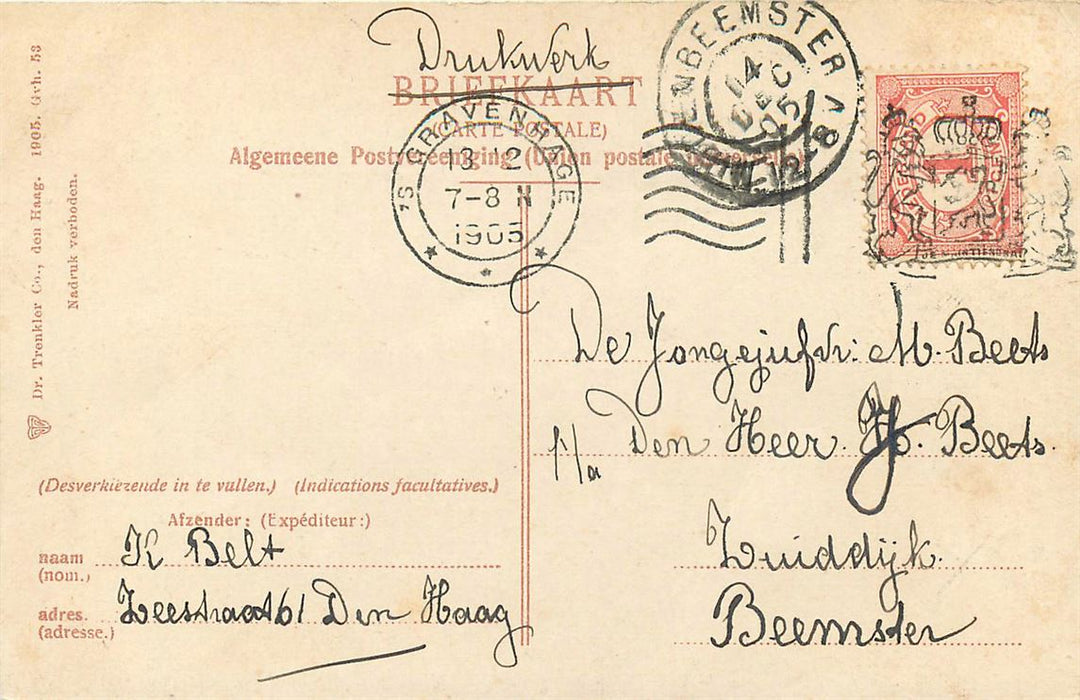 Drukwerk
BRIEFKAART
(CARTE POSTALE)
Algemeene Postvereeniging (Union postale universelle)
'S GRAVENHAGE
13 12
7-8 N
1905
BEEMSTER
14
DEC
05
8-12 V
Dr. Trenkler Co., den Haag. 1905. Gvh. 53
Nadruk verboden.
De Jongejufvr: M. Beets
p/a Den Heer H. Beets.
Zuiddijk.
Beemster
(Desverkiezende in te vullen.) (Indications facultatives.)
Afzender: (Expéditeur:)
naam K Belt
(nom.)
adres. Zeestraat 61 Den Haag
(adresse.)